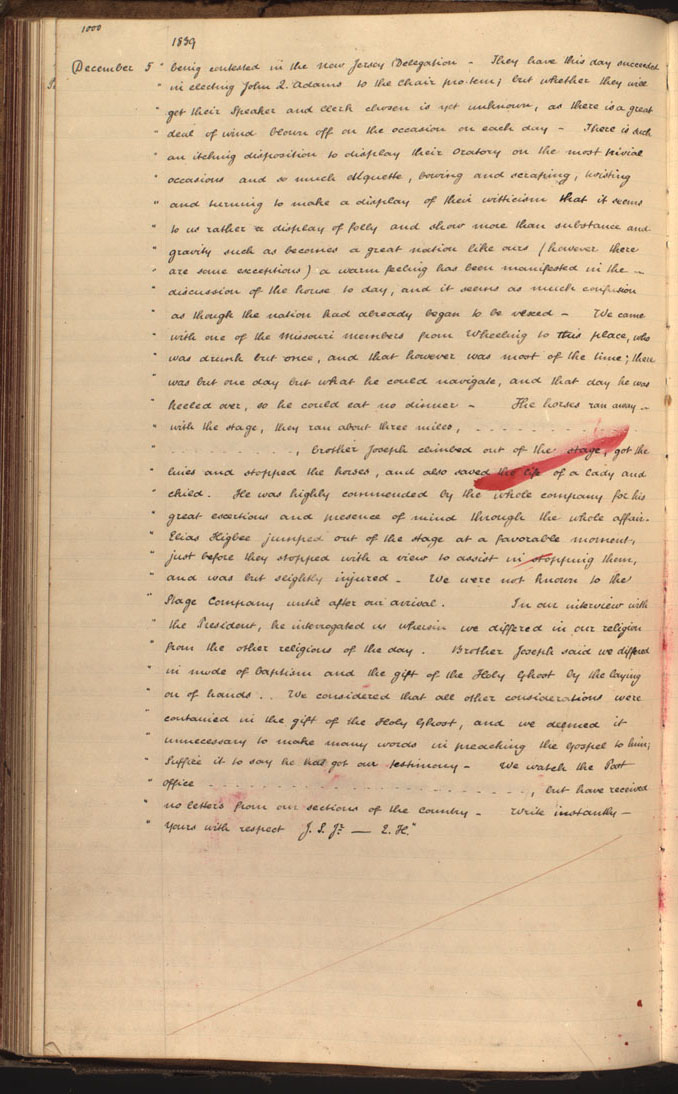 1000
1839
December 5 " being contested in the New Jersey Delegation – They have this day succeeded
" in electing John Q. Adams to the chair pro. tem; but whether they will
get their Speaker and Clerk chosen is yet unknown, as there is a great
" deal of wind blown off on the occasion on each day – There is such
" an itching disposition to display their oratory on the most trivial
" occasions and so much etiquette, bowing and scraping, twisting
" and turning to make a display of their witticism that it seems
" to us rather a display of folly and show more than substance and
" gravity such as becomes a great nation like ours (however there
" are some exceptions) a warm feeling has been manifested in the –
" discussion of the house to day, and it seems as much confusion
" as though the nation had already began to be vexed – We came
" with one of the Missouri members from Wheeling to this place, who
" was drunk but once, and that however was most of the time; there
" was but one day but what he could navigate, and that day he was
" keeled over, so he could eat no dinner – The horses ran away –
" with the stage, they ran about three miles, . . . . . . . . . .
" . . . . . . . . . . , brother Joseph climbed out of the stage, got the
" lines and stopped the horses, and also saved the life of a lady and
" child. He was highly commended by the whole company for his
" great exertions and presence of mind through the whole affair.
" Elias Higbee jumped out of the stage at a favorable moment,
" just before they stopped with a view to assist in stopping them,
" and was but slightly injured – We were not known to the
" Stage Company until after our arrival. In our interview with
" the President, he interrogated us wherein we differed in our religion
" from the other religions of the day. Brother Joseph said we differed
" in mode of baptism and the gift of the Holy Ghost by the laying
" on of hands . . We considered that all other considerations were
" contained in the gift of the Holy Ghost, and we deemed it
" unnecessary to make many words in preaching the Gospel to him;
" Suffice it to say he has got our testimony – We watch the Post
" office . . . . . . . . . . . . . . . . . . . . , but have received
" no letters from our sections of the country – Write instantly –
" Yours with respect J. S. Jr. — E. H."